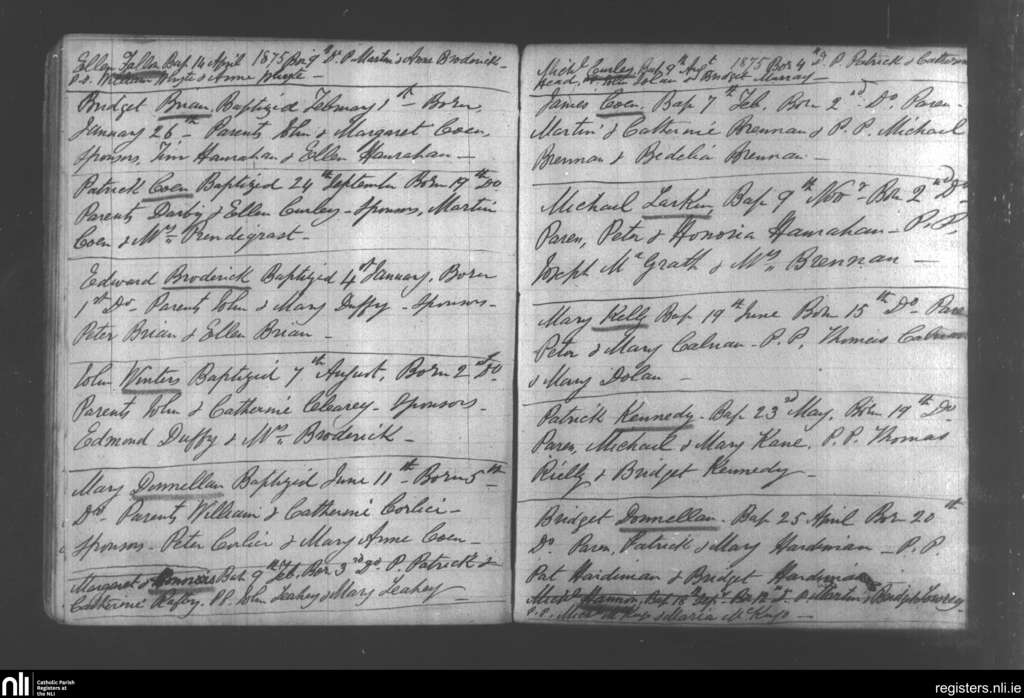 Ellen Fallon Bap 14 April 1875 Bor 9th Do P. Martin & Anne Broderick -
P.P. William Whyte & Anne Whyte -
Bridget Brian Baptized February 1st - Born,
January 26th - Parents John & Margaret Coen,
Sponsors, Tim Hanrahan & Ellen Hanrahan -
Patrick Coen Baptized 24th September Born 19th Do
Parents Darby & Ellen Curley - Sponsors, Martin
Coen & Mrs Prendigrast -
Edward Broderick Baptized 4th January, Born
1st Do - Parents John & Mary Duffy - Sponsors -
Peter Brian & Ellen Brian -
John Winters Baptized 7th August, Born 2nd Do
Parents John & Catherine Clearey - Sponsors -
Edmond Duffy & Mrs Broderick -
Mary Donnellan Baptized June 11th - Born 5th
Do - Parents William & Catherine Corlier -
Sponsors - Peter Corlier & Mary Anne Coen -
Margaret & Honoria Bap 9th Feb. Bor 3rd Do. P. Patrick &
Catherine Rafty. PP. John Leahey & Mary Leahey -
Michl Curley Bap 9th Augt 1875 Bor 4th D. P. Patrick & Catherine
Head, Dolan & Bridget Murray -
James Coen, Bap 7th Feb, Born 2nd Do, Paren -
Martin & Catherine Brennan & P.P. Michael
Brennan & Bedelia Brennan -
Michael Larkin Bap 9th Nor - Bon 2nd Do
Paren, Peter & Honoria Hanrahan - P.P,
Joseph McGrath & Mrs Brennan -
Mary Kelly Bap 19th June Born 15th Do - Pare
Peter & Mary Calnan - P.P, Thomas
& Mary Dolan -
Patrick Kennedy - Bap 23rd May, Born 19th Do
Paren, Michael & Mary Kane, P.P. Thomas
Rielly & Bridget Kennedy -
Bridget Donnellan - Bap 25 April Bor 20th
Do, Paren, Patrick & Mary Hardiman - P.P
Pat Hardiman & Bridget Hardiman
Michl Mannion, Bap 18th Sept. Bor 12th P. Martin & Bridget
P.P. & Maria McHugo -
nli
Catholic Parish
Registers at
the NLI
registers.nli.ie